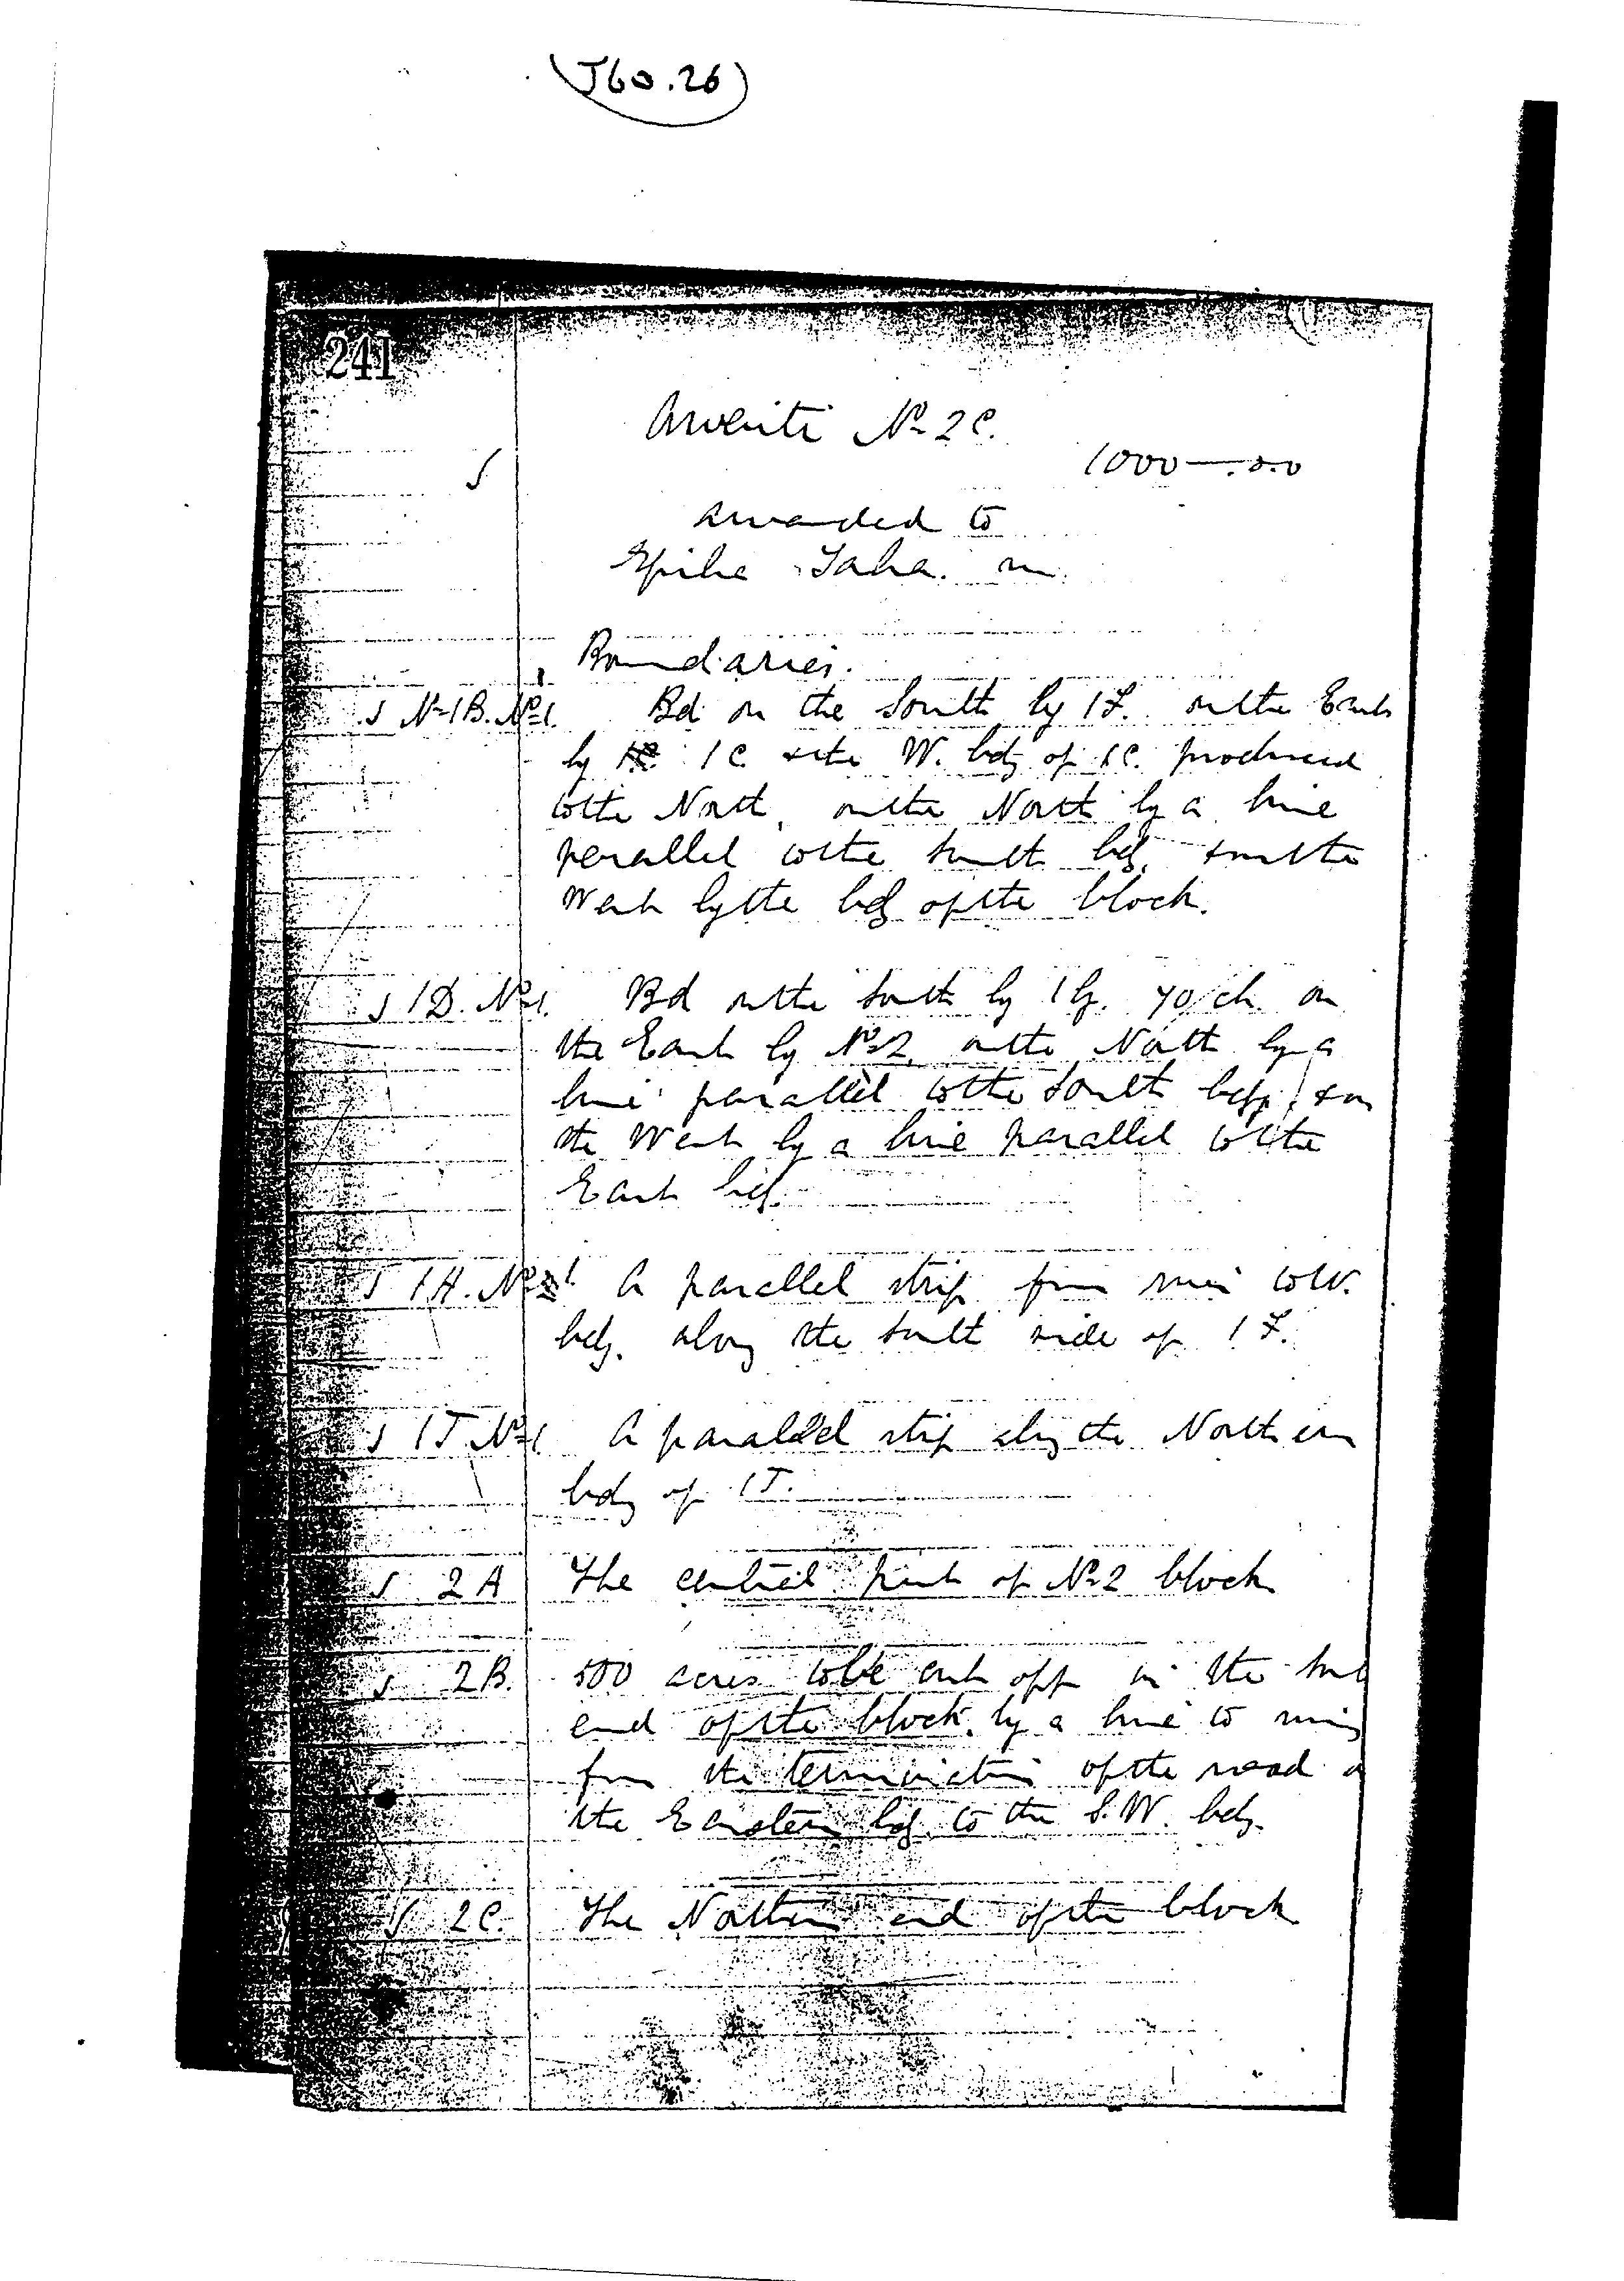 (J60.26)
241
Arorenti No 2C.
1000 — . 0.0
Awarded to
Epiha Taha. m.
Boundaries.
No 1B. No 1. Bd on the South by 1F. on the East
by 1C & the W. bdy of 1C. produced
to the North, on the North by a line
parallel to the South bdy. & on the
West by the bdy of the block.
1D. No 1. Bd on the South by 1G. 70 ch on
the East by No 2, on the North by a
line parallel to the South bdy, & on
the West by a line parallel to the
East bdy.
1H. No 1 A parallel strip from to W.
bdy. along the South side of 1F.
1J. No 1 A parallel strip along the Northern
bdy of 1J.
2A The central part of No 2 block
2B. 500 acres to be cut off in the
end of the block by a line to
from the termination of the road
the Eastern bdy. to the S.W. bdy.
2C. The Northern end of the block